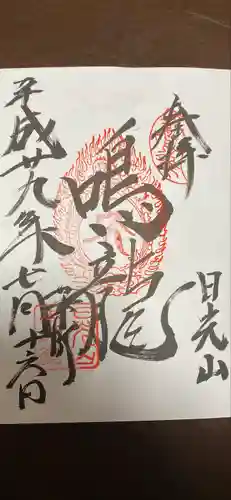 奉拝
日光山
鳴龍
平成廿九年七月十六日